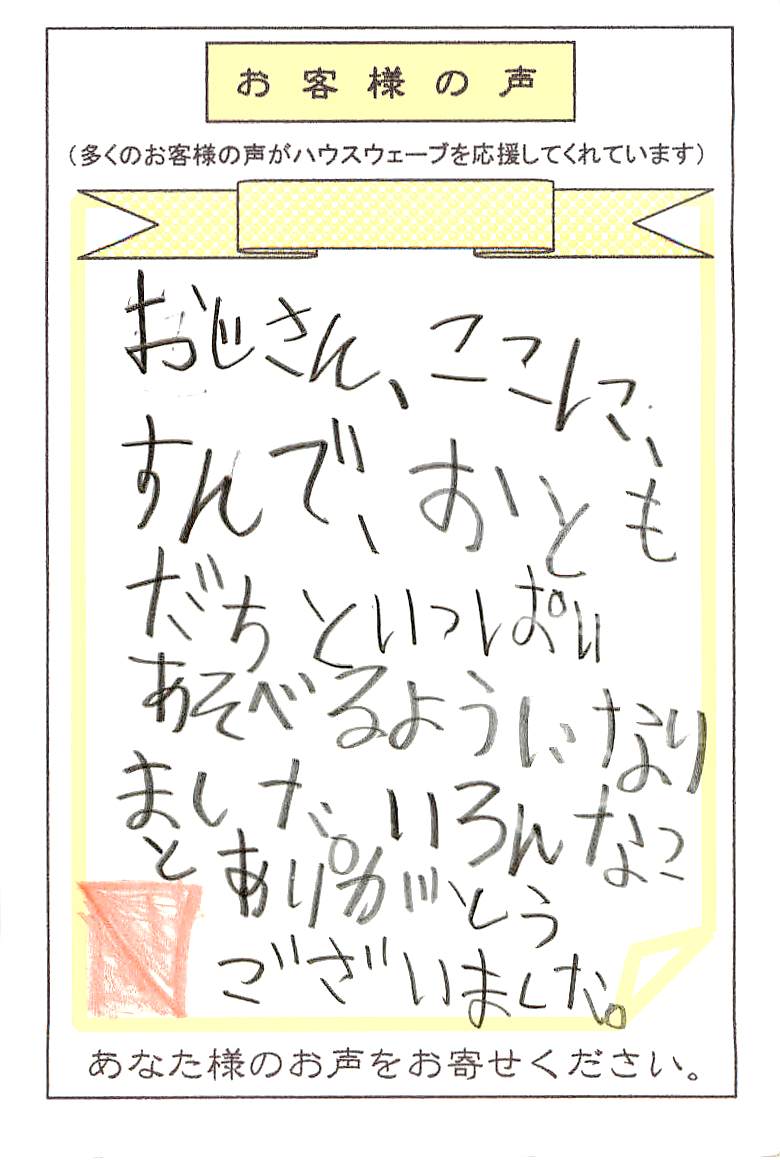 お客様の声
（多くのお客様の声がハウスウェーブを応援してくれています）
おじさん、ここに、
すんで、おとも
だちといっぱい
あそべるようになり
ました。いろんなこ
とありがとう
ございました。
あなた様のお声をお寄せください。